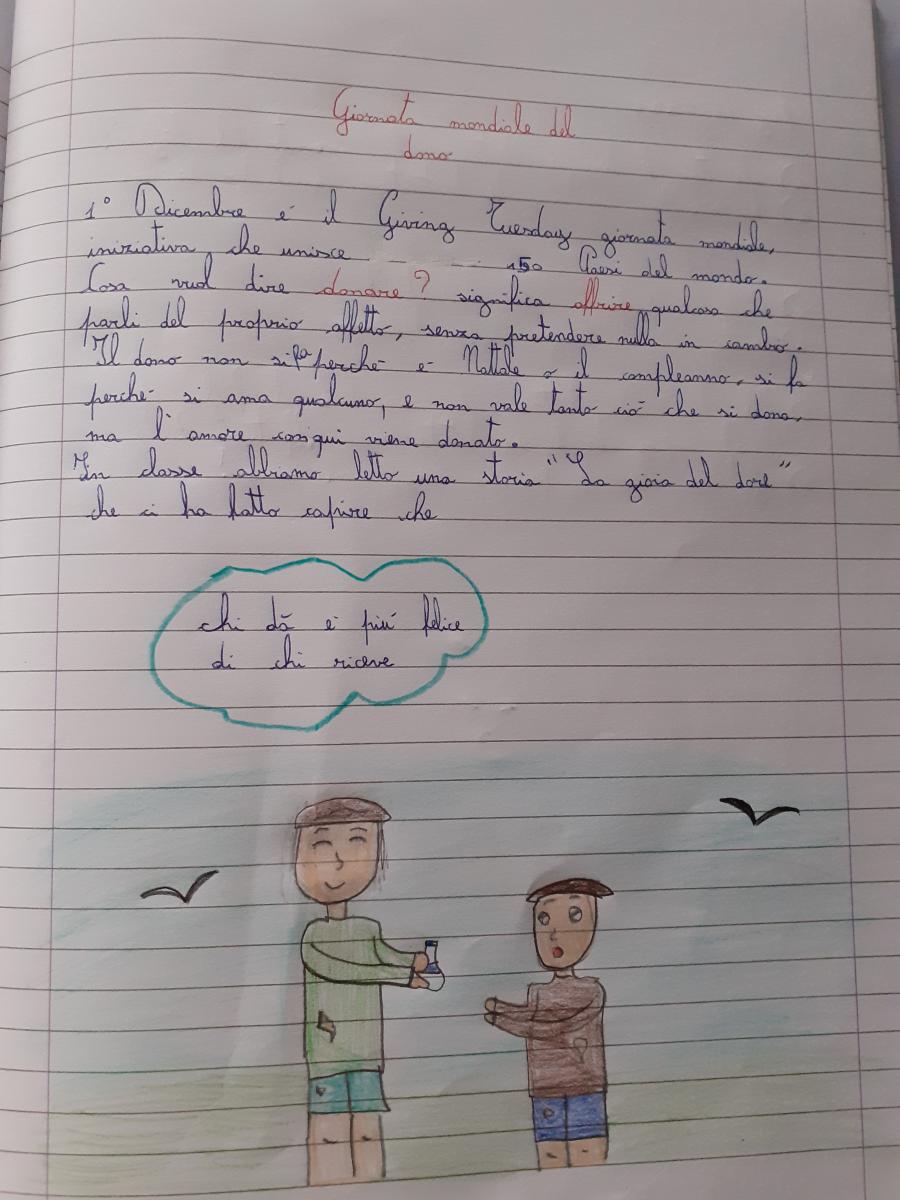 Giornata mondiale del
dono
1° Dicembre é il Giving Tuesday giornata mondiale,
iniziativa, che unisce 150 Paesi del mondo.
Cosa vuol dire donare? significa offrire qualcosa che
parli del proprio affetto, senza pretendere nulla in cambio.
Il dono non si fa perché é Nattale o il compleanno, si fa
perché si ama qualcuno, e non vale tanto ció che si dona,
ma l'amore con qui viene donato.
In classe abbiamo letto una storia "La gioia del dare"
che ci ha fatto capire che
chi dá é piú felice
di chi riceve